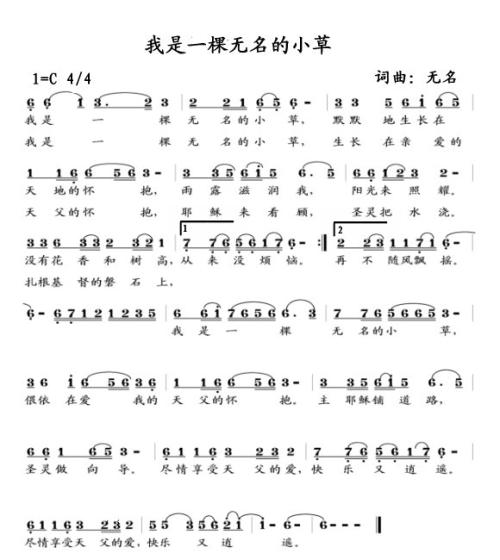 我是一棵无名的小草
1=C 4/4 词曲：无名
6 6 1 3. 2 3 2 2 2 1 6 5 6 - 3 3 5 6 1 6 5
我是一 棵无名的小草, 默默地生长在
我是一 棵无名的小草, 生长在亲爱的
1 1 6 6 5 6 3 - 3 3 5 6 1 5 6. 5 6 1 2 3 1 2 3 -
天地的怀 抱, 雨露滋润我, 阳光来照耀。
天父的怀 抱, 耶稣来看顾, 圣灵把水浇。
3 3 6 3 3 2 3 2 1 7 7 6 5 6 1 7 6 - :‖ 2 2 3 1 7 7 1 6 -
没有花香和树高, 从来没烦恼。 再不随风飘摇。
扎根基督的磐石上,
6 - 6 7 1 2 1 2 3 5 6 - 6 1 7 6 5 6 6. 3 7 7 6 5 6 6 5 3 -
我是一 棵 无名的小草,
3 6 1 6 5 6 3 6 1 1 6 6 5 6 3 - 3 3 5 6 1 5 6. 5
偎依在爱 我的天父的怀 抱。 主耶稣铺道路,
6 6 1 6 5 3 - 6 1 1 6 3 2 3 2 7 7 6 5 6 1 7 6 -
圣灵做向导。 尽情享受天父的爱, 快乐又逍遥。
6 1 1 6 3 2 3 2 5 5 3 5 5 6 2 1 1 - 6 - ‖
尽情享受天父的爱, 快乐又逍 遥。